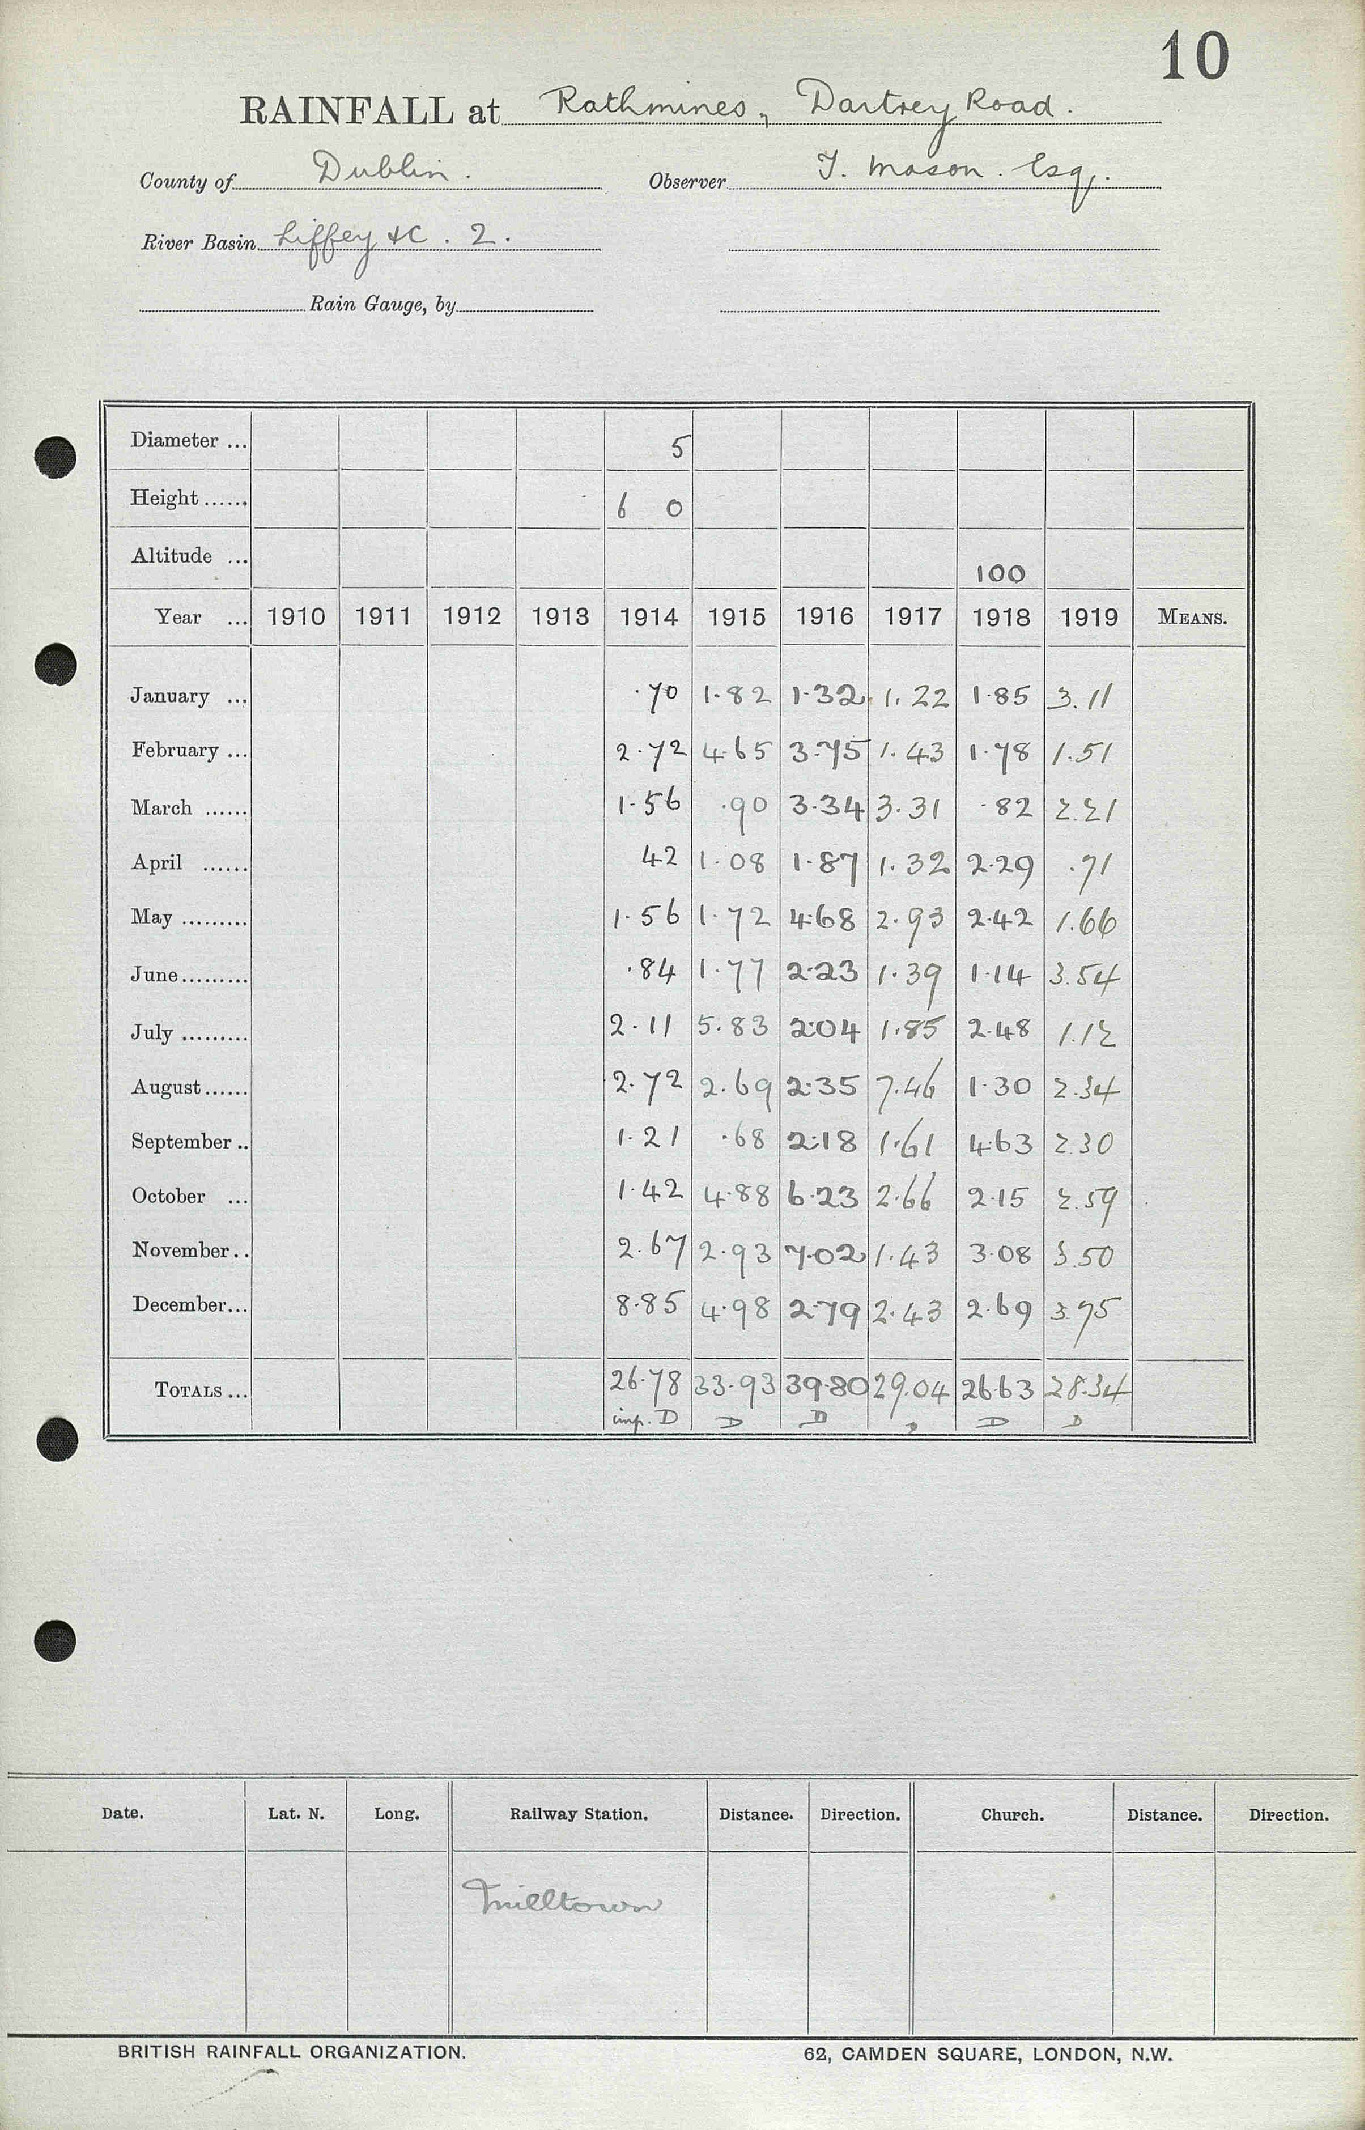 10
RAINFALL at Rathmines, Dartrey Road.
County of Dublin. Observer T. Mason. Esq.
River Basin Liffey &c. 2.
Rain Gauge, by
Diameter ... 5
Height ...... 6 0
Altitude ... 100
Year ... 1910 1911 1912 1913 1914 1915 1916 1917 1918 1919 MEANS.
January ... ·70 1·82 1·32 1·22 1·85 3.11
February ... 2·72 4·65 3·75 1·43 1·78 1.51
March ...... 1·56 ·90 3·34 3·31 ·82 2.21
April ...... 42 1·08 1·87 1·32 2·29 .71
May ......... 1·56 1·72 4·68 2·93 2·42 1.66
June......... ·84 1·77 2·23 1·39 1·14 3.54
July ......... 2·11 5·83 2·04 1·85 2·48 1.12
August...... 2·72 2·69 2·35 7·46 1·30 2.34
September .. 1·21 ·68 2·18 1·61 4·63 2.30
October ... 1·42 4·88 6·23 2·66 2·15 2.59
November.. 2·67 2·93 7·02 1·43 3·08 3.50
December... 8·85 4·98 2·79 2·43 2·69 3.75
TOTALS ... 26·78 33·93 39·80 29.04 26·63 28.34
imp. D D D D D
Date. Lat. N. Long. Railway Station. Distance. Direction. Church. Distance. Direction.
Milltown
BRITISH RAINFALL ORGANIZATION. 62, CAMDEN SQUARE, LONDON, N.W.